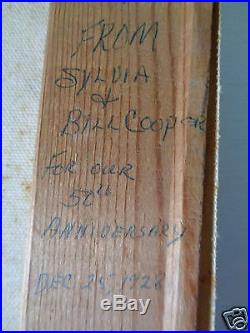 FROM
SYLVIA
&
BILL COOPER
FOR OUR
50th
ANNIVERSARY
DEC 25, 1928